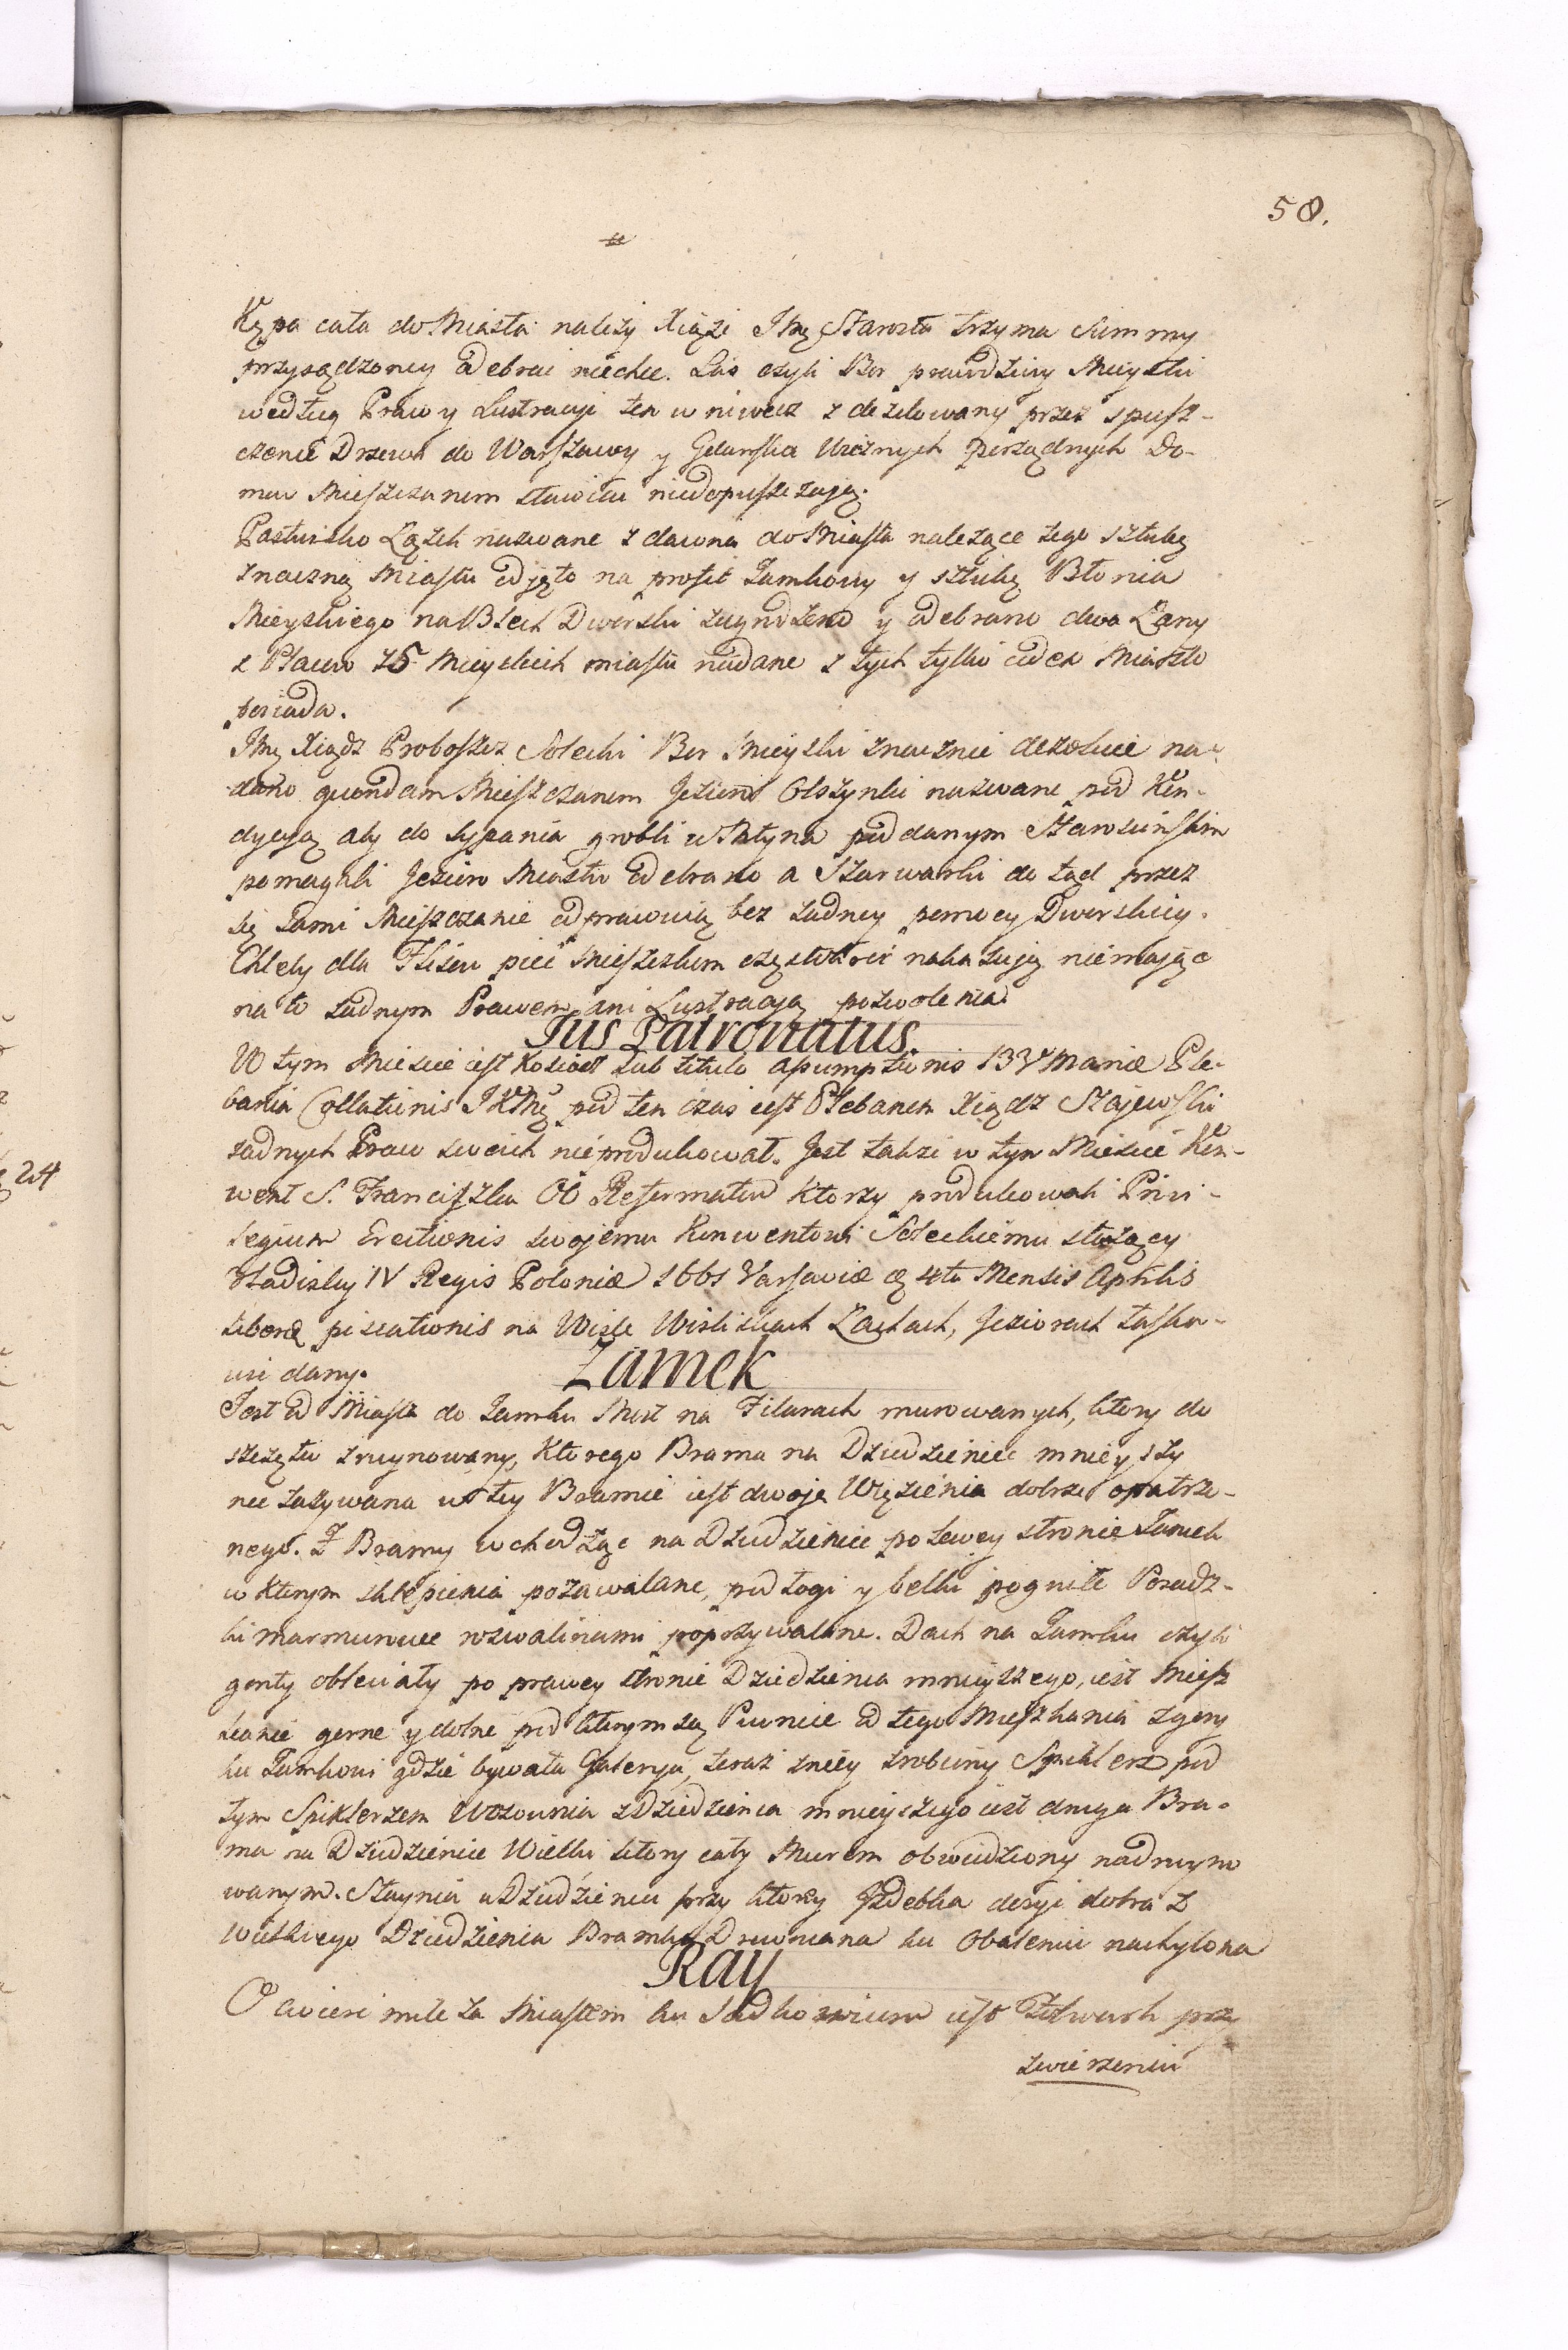 58.
Kępa cała do Miasta należy Xiąże Jmę Starosta trzyma Summy
przysądzoney odebrać niechce. Las czyli Bor prawdziwy Mieyski
według Praw y Lustracyi ten w niwecz zdezelowany przez spusz-
czenie Drzewa do Warszawy y Gdańska Ucznych porządnych Do-
mow Mieszczanom stawiać niedopuszczają.
Pastwisko Lążek nazwane z dawna do Miasta należące tego sztukę
znaczną Miastu odjęto na profit Zamkowy y sztukę Błonia
Mieyskiego na Blech Dworski zagrodzono y odebrano dwa Łany
z Placow 75 Mieyskich miastu nadane z tych tylko eden Miasto
posiada.
Jmę Xiądz Proboszcz Solecki Bor Mieyski znacznie dezoluie na-
dano quondam Mieszczanom Jezioro Olszynki nazwane pod Kon-
dycyą aby do sypania grobli u Młyna poddanym Starościńskim
pomagali Jezioro Miastu odebrano a Szarwarki do tąd przez
się sami Mieszczanie odprawuią bez żadney pomocy Dworskiey.
Chleby dla Flisow piec Mieszczkom częstokroć nakazują niemając
na to żadnym Prawem ani Lustracyą pozwolenia
Jus Patronatus.
W tym Miescie iest Kościoł sub titulo Assumptionis BV Mariæ Ple-
bania Collationis JKMę pod ten czas iest Plebanem Xiądz Stajewski
żadnych Praw swoich nieprodukował. Jest także w tym Miescie Kon-
went S. Franciszka OO Reformatow ktorzy produkowali Privi-
legium Erectionis swojemu Konwentowi Soleckiemu służący
Vladislai IV Regis Poloniæ 1661 Varsaviæ d 4to Mensis Aprilis
liberæ piscationis na Wiśle Wiśliskach Łachach, Jeziorach łaska-
wie dany.
Zamek
Jest od Miasta do Zamku Most na Filarach murowanych, ktory do
szczętu zruynowany, ktorego Brama na Dziedziniec mnieyszy
nie zażywana w tey Bramie iest dwoje Więzienia dobrze opatrzo-
nego. Z Bramy wchodząc na Dziedziniec po lewey stronie Zamek
w ktorym sklepienia pozawalane, podłogi y belki pogniłe Posadz-
ki marmurowe rozwalinami poprzywalane. Dach na Zamku czyli
gonty obleciały po prawey stronie Dziedzienca mnieyszego, iest Miesz
kanie gorne y dolne pod ktorym są Piwnice od tego Mieszkania z gory
ku Zamkowi gdzie bywała Galerya, teraz z niey zrobiony Spiklerz pod
tym Spiklerzem Wozownia z Dziedzienca mnieyszego iest druga Bra-
ma na Dziedzieniec Wielki ktory cały Murem obwiedziony nadruyno
wanym. Staynia w Dziedziencu przy ktorey Izdebka dosyć dobra z
Wielkiego Dziedzienca Bramka Drewniana ku Obaleniu nachylona
Ray
O cwierć mile za Miastem ku Sadkowicom iest Folwark przy
zwierzeniu